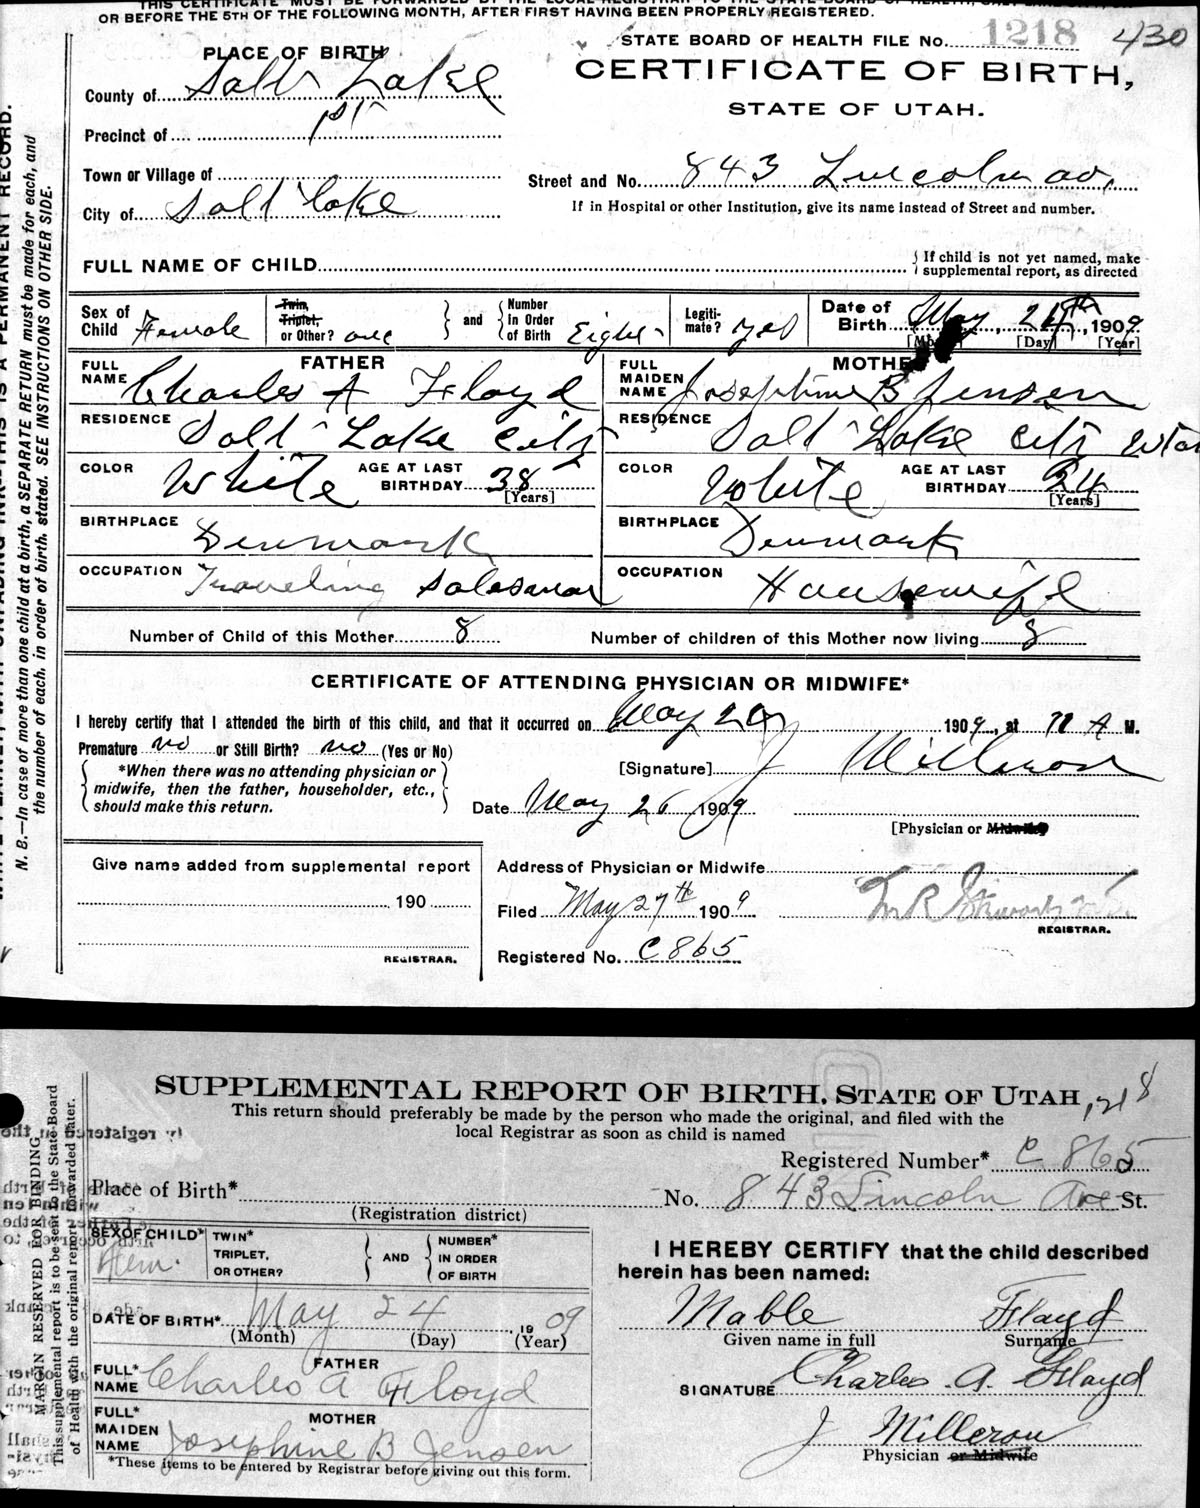 THIS CERTIFICATE MUST BE FORWARDED BY THE LOCAL REGISTRAR TO THE STATE BOARD OF HEALTH,
OR BEFORE THE 5TH OF THE FOLLOWING MONTH, AFTER FIRST HAVING BEEN PROPERLY REGISTERED.
STATE BOARD OF HEALTH FILE No. 1218 430
PLACE OF BIRTH
CERTIFICATE OF BIRTH,
STATE OF UTAH.
County of Salt Lake
Precinct of 1st
Town or Village of
City of Salt Lake
Street and No. 843 Lincoln av.
If in Hospital or other Institution, give its name instead of Street and number.
FULL NAME OF CHILD
If child is not yet named, make
supplemental report, as directed
Sex of Child Female
Twin, Triplet, or Other? one
and Number in Order of Birth Eight
Legiti-mate? yes
Date of Birth May, 24th, 1909
[Day] [Year]
FATHER
FULL NAME Charles A Floyd
RESIDENCE Salt Lake City
COLOR White AGE AT LAST BIRTHDAY 38 [Years]
BIRTHPLACE Denmark
OCCUPATION Traveling Salesman
MOTHER
FULL MAIDEN NAME Josephine B Jensen
RESIDENCE Salt Lake City Utah
COLOR White AGE AT LAST BIRTHDAY 34 [Years]
BIRTHPLACE Denmark
OCCUPATION Housewife
Number of Child of this Mother 8 Number of children of this Mother now living 8
CERTIFICATE OF ATTENDING PHYSICIAN OR MIDWIFE*
I hereby certify that I attended the birth of this child, and that it occurred on May 24, 1909, at 11 A M.
Premature no or Still Birth? no (Yes or No)
*When there was no attending physician or
midwife, then the father, householder, etc.,
should make this return.
[Signature] J Milleron
Date May 26 1909
[Physician or Midwife
Give name added from supplemental report
190
REGISTRAR.
Address of Physician or Midwife
Filed May 27th 1909
REGISTRAR.
Registered No. C865
WITH UNFADING INK—THIS IS A PERMANENT RECORD.
N. B.—In case of more than one child at a birth, a SEPARATE RETURN must be made for each, and
the number of each, in order of birth, stated. SEE INSTRUCTIONS ON OTHER SIDE.
SUPPLEMENTAL REPORT OF BIRTH, STATE OF UTAH 1218
This return should preferably be made by the person who made the original, and filed with the
local Registrar as soon as child is named
Registered Number* C 865
Place of Birth* No. 843 Lincoln Ave St.
(Registration district)
SEX OF CHILD* Fem.
TWIN* TRIPLET, OR OTHER?
AND NUMBER* IN ORDER OF BIRTH
DATE OF BIRTH* May 24 1909
(Month) (Day) (Year)
FATHER
FULL* NAME Charles A Floyd
MOTHER
FULL* MAIDEN NAME Josephine B Jensen
*These items to be entered by Registrar before giving out this form.
I HEREBY CERTIFY that the child described
herein has been named:
Mable Floyd
Given name in full Surname
SIGNATURE Charles A. Floyd
J Milleron
Physician or Midwife
MARGIN RESERVED FOR BINDING
This supplemental report is to be sent to the State Board
of Health with the original report forwarded later.